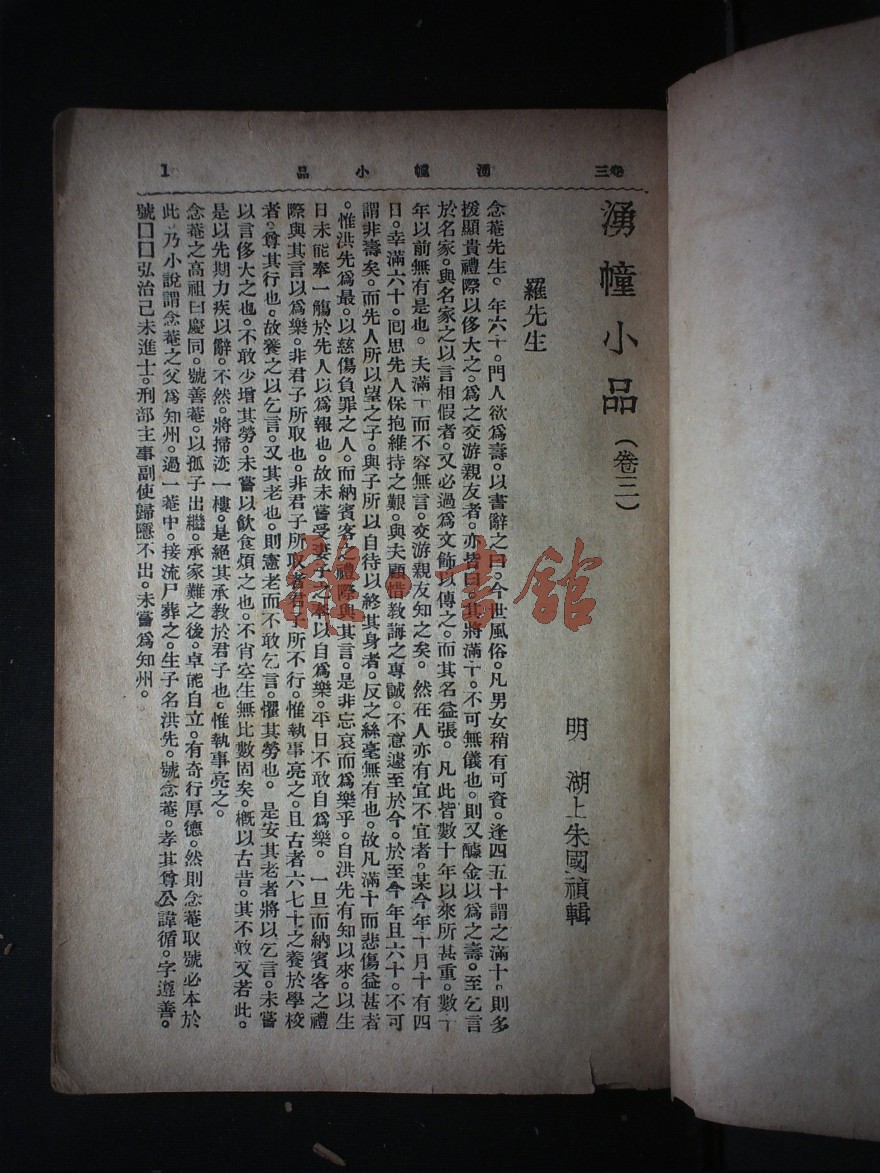 卷三 湧幢小品 1
湧幢小品（卷三）
明 湖上朱國禎輯
羅先生
念菴先生。年六十。門人欲爲壽。以書辭之曰。今世風俗。凡男女稍有可資。逢四五十謂之滿十。則多
援顯貴禮際以侈大之。爲之交游親友者。亦皆曰其將滿十。不可無儀也。則又醵金以爲之壽。至乞言
於名家。與名家之以言相假者。又必過爲文飾以傳之。而其名益張。凡此皆數十年以來所甚重。數十
年以前無有是也。夫滿十而不容無言。交游親友知之矣。然在人亦有宜不宜者。某今年十月十有四
日。幸滿六十。囘思先人保抱維持之艱。與夫顧惜教誨之專誠。不意遽至於今。於至今年且六十。不可
謂非壽矣。而先人所以望之子。與子所以自待以終其身者。反之絲毫無有也。故凡滿十而悲傷益甚者
。惟洪先爲最。以慈傷負罪之人。而納賓客之禮際與其言。是非忘哀而爲樂乎。自洪先有知以來。以生
日未能奉一觴於先人以爲報也。故未嘗受妻子之奉以自爲樂。平日不敢自爲樂。一旦而納賓客之禮
際與其言以爲樂。非君子所取也。非君子所取者君子所不行。惟執事亮之。且古者六七十之養於學校
者。尊其行也。故養之以乞言。又其老也。則憲老而不敢乞言。懼其勞也。是安其老者將以乞言。未嘗
以言侈大之也。不敢少增其勞。未嘗以飲食煩之也。不肖空生無比數固矣。槪以古昔。其不敢又若此。
是以先期力疾以辭。不然。將掃迹一樓。是絕其承教於君子也。惟執事亮之。
念菴之高祖曰慶同。號善菴。以孤子出繼。承家難之後。卓能自立。有奇行厚德。然則念菴取號必本於
此。乃小說謂念菴之父爲知州。過一菴中。接流尸葬之。生子名洪先。號念菴。考其尊公諱循。字遵善。
號囗囗弘治己未進士。刑部主事副使歸隱不出。未嘗爲知州。
雜·書館